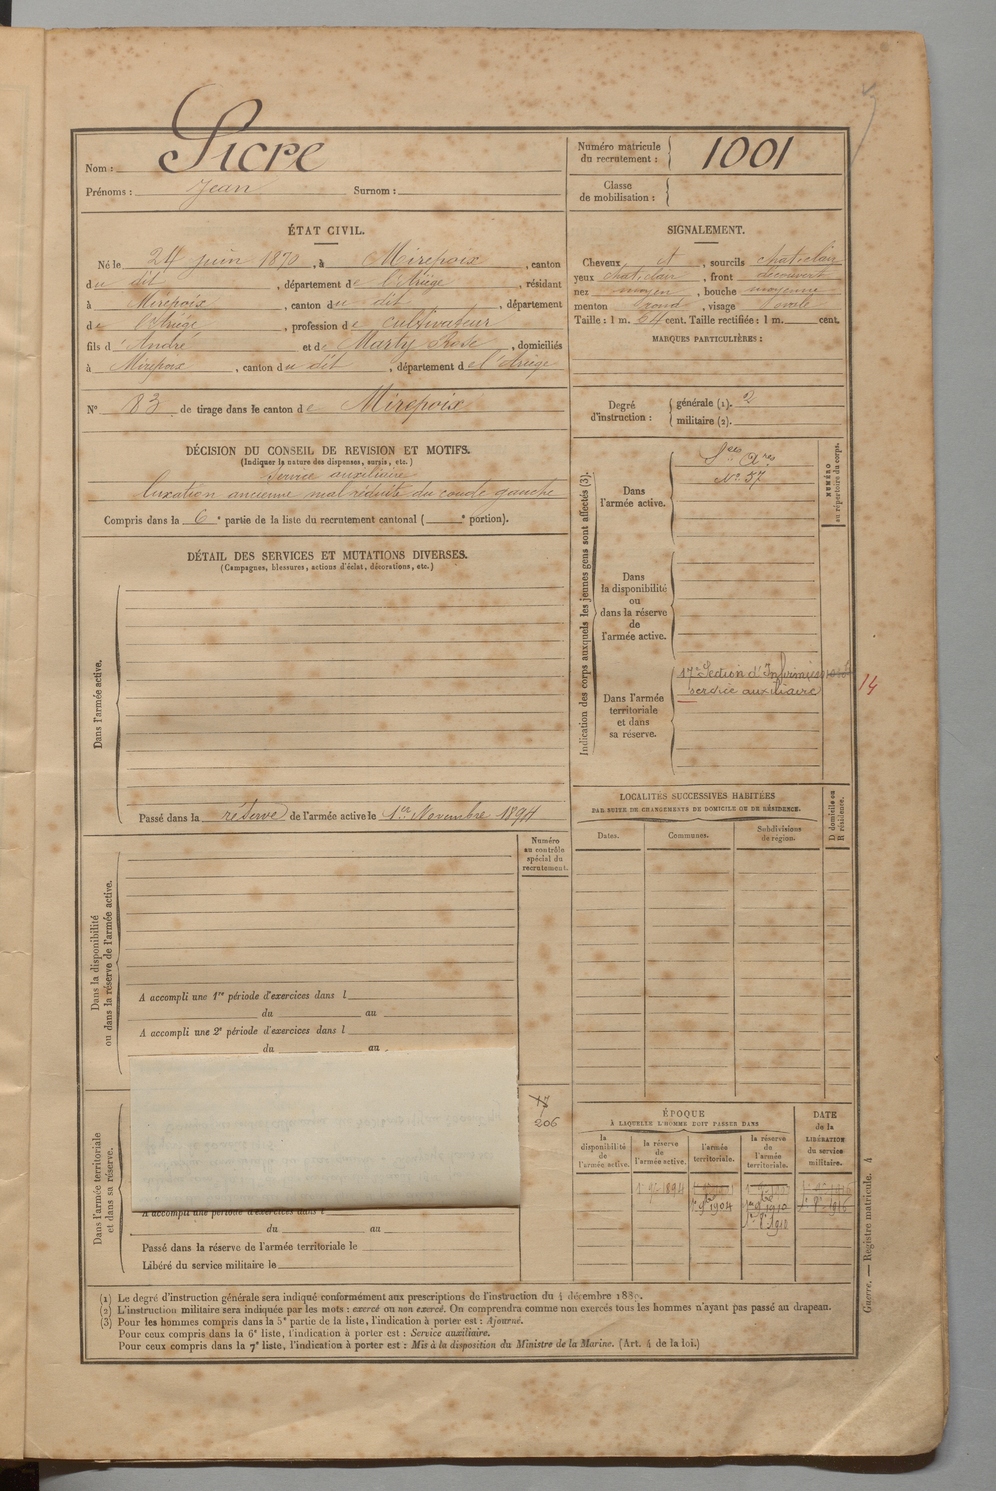 Nom : Sicre
Prénoms : Jean Surnom :
Numéro matricule du recrutement : 1001
Classe de mobilisation :
ÉTAT CIVIL.
Né le 24 juin 1870, à Mirepoix, canton
du dit, département de l'Ariège, résidant
à Mirepoix, canton du dit, département
de l'Ariège, profession de cultivateur
fils d'André et de Marty Rose, domiciliés
à Mirepoix, canton du dit, département de l'Ariège
N° 83 de tirage dans le canton de Mirepoix
SIGNALEMENT.
Cheveux et, sourcils chat. clair
yeux chat. clair, front découvert
nez moyen, bouche moyenne
menton rond, visage ovale
Taille : 1 m. 64 cent. Taille rectifiée : 1 m. cent.
MARQUES PARTICULIÈRES :
Degré d'instruction : générale (1). 2
militaire (2).
DÉCISION DU CONSEIL DE REVISION ET MOTIFS.
(Indiquer la nature des dispenses, sursis, etc.)
Service auxiliaire
luxation ancienne mal réduite du coude gauche
Compris dans la 6e partie de la liste du recrutement cantonal ( e portion).
DÉTAIL DES SERVICES ET MUTATIONS DIVERSES.
(Campagnes, blessures, actions d'éclat, décorations, etc.)
Dans l'armée active.
Passé dans la réserve de l'armée active le 1er Novembre 1894
Indication des corps auxquels les jeunes gens sont affectés (3).
NUMÉRO au répertoire du corps.
Dans l'armée active.
Ses Ares
N° 57
Dans la disponibilité ou dans la réserve de l'armée active.
Dans l'armée territoriale et dans sa réserve.
17e Section d'Infirmiers
service auxiliaire
14
LOCALITÉS SUCCESSIVES HABITÉES
PAR SUITE DE CHANGEMENTS DE DOMICILE OU DE RÉSIDENCE.
D domicile ou R résidence.
Dates. Communes. Subdivisions de région.
Numéro au contrôle spécial du recrutement.
Dans la disponibilité ou dans la réserve de l'armée active.
A accompli une 1re période d'exercices dans l
du au
A accompli une 2e période d'exercices dans l
du au
206
Dans l'armée territoriale et dans sa réserve.
A accompli une période d'exercices dans l
du au
Passé dans la réserve de l'armée territoriale le
Libéré du service militaire le
ÉPOQUE
À LAQUELLE L'HOMME DOIT PASSER DANS
DATE de la LIBÉRATION du service militaire.
la disponibilité de l'armée active.
la réserve de l'armée active.
l'armée territoriale.
la réserve de l'armée territoriale.
1er 9bre 1894
1er 9bre 1904 1er 9bre 1910
1er 8bre 1910
(1) Le degré d'instruction générale sera indiqué conformément aux prescriptions de l'instruction du 4 décembre 1889.
(2) L'instruction militaire sera indiquée par les mots : exercé ou non exercé. On comprendra comme non exercés tous les hommes n'ayant pas passé au drapeau.
(3) Pour les hommes compris dans la 5e partie de la liste, l'indication à porter est : Ajourné.
Pour ceux compris dans la 6e liste, l'indication à porter est : Service auxiliaire.
Pour ceux compris dans la 7e liste, l'indication à porter est : Mis à la disposition du Ministre de la Marine. (Art. 4 de la loi.)
Guerre. — Registre matricule. 4